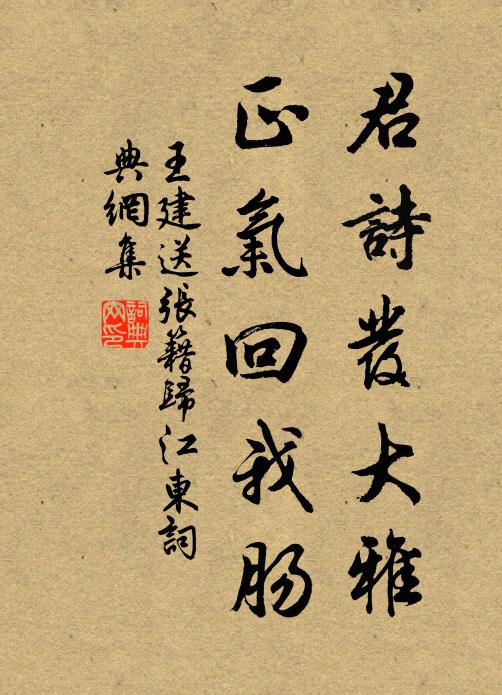 君詩發大雅
正氣回我腸
王建送張籍歸江東詞
典網集
詞典
网印